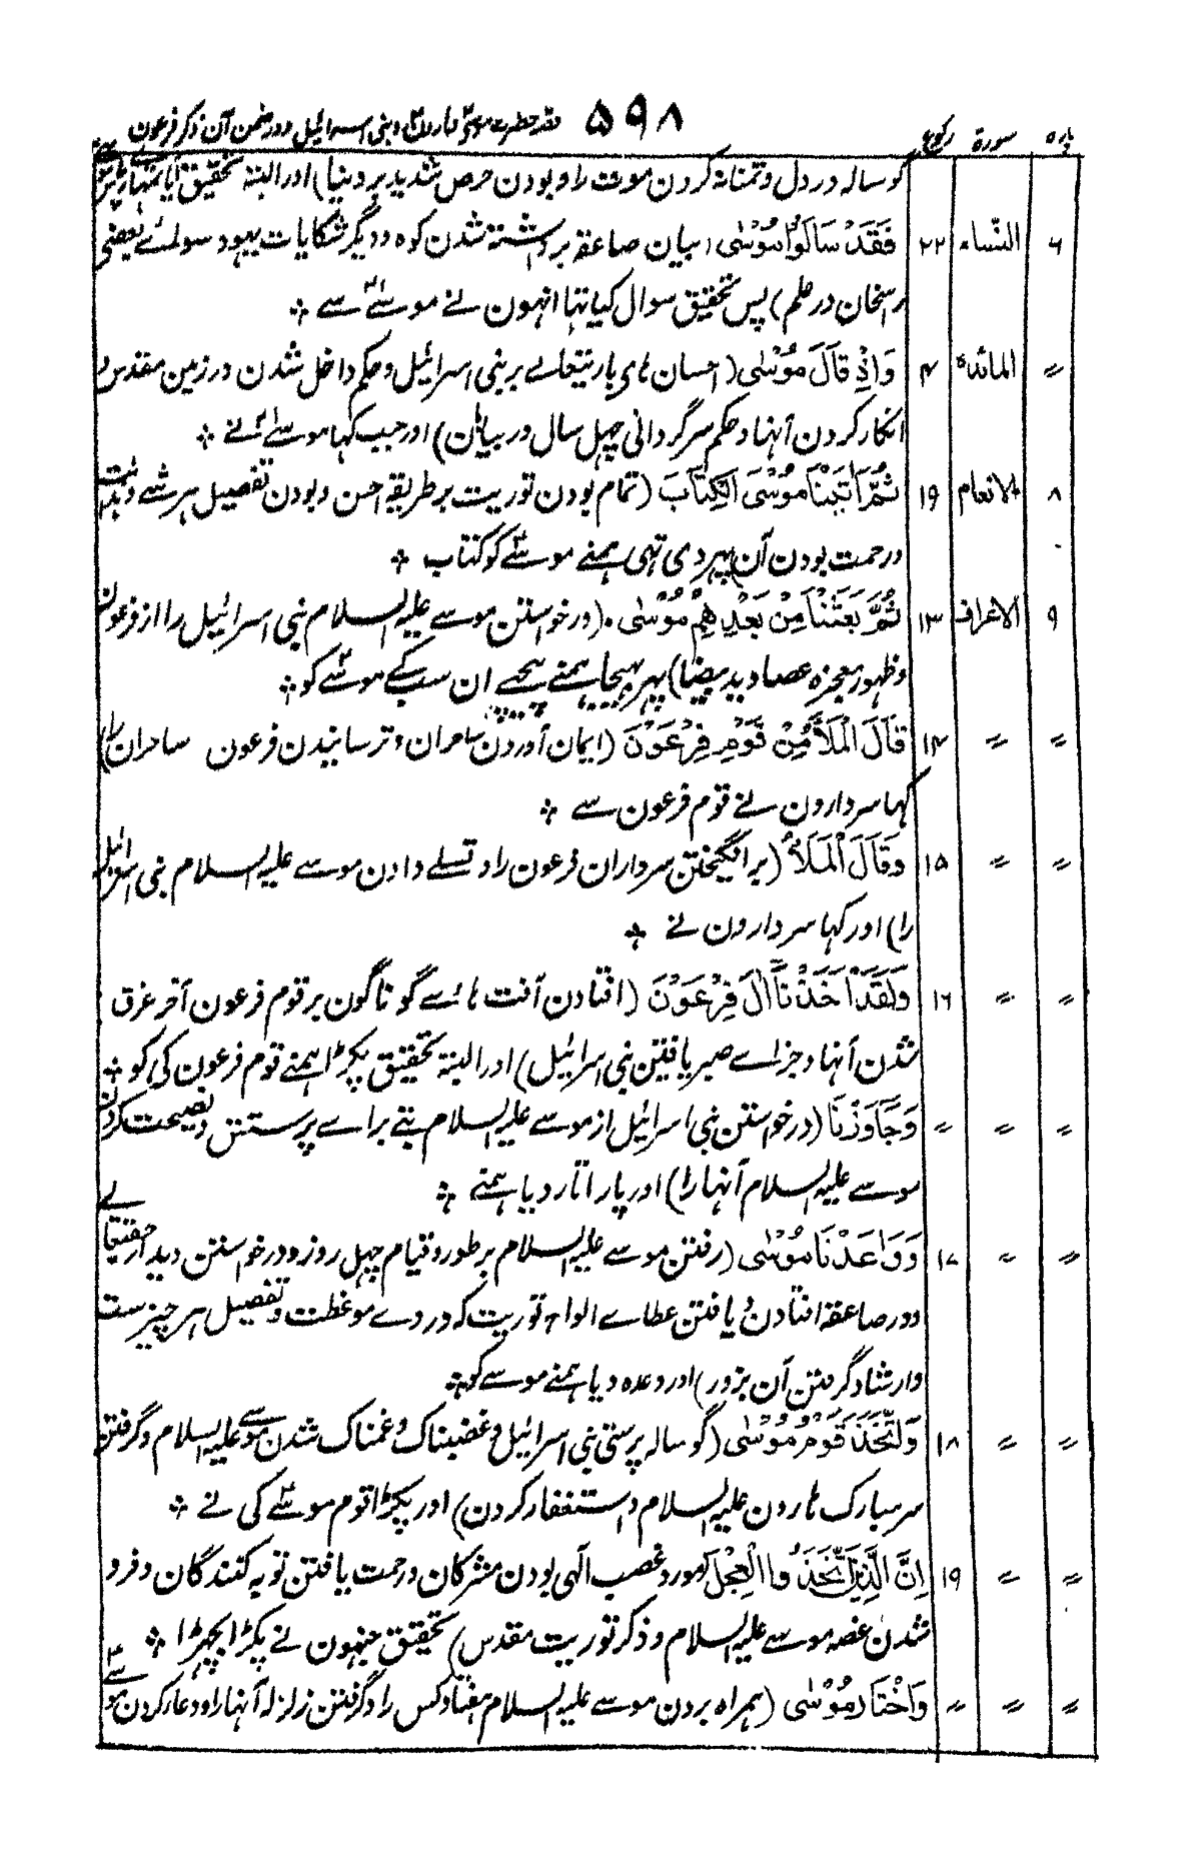 پارہ سورۃ رکوع ۵۹۸ قصہ حضرت موسیٰ و ہارون و بنی اسرائیل و در ضمن آن ذکر فرعون
گوسالہ در دل و تمنا نہ کردن موت را و بودن حرص شدید بر دنیا) اور البتہ تحقیق آیا تمہارے پاس
۶ النّساء ۲۲ فَقَدْ سَاَلُوْا مُوْسٰی (بیان صاعقہ برداشتہ شدن کوہ و دیگر شکایات یہود سوائے بعضی
راسخان در علم) پس تحقیق سوال کیا تہا انہون نے موسیٰ سے ؞
〃 المائدۃ ۴ وَاِذْ قَالَ مُوْسٰی (احسان ہای باریتعالے بر بنی اسرائیل و حکم داخل شدن در زمین مقدس و
انکار کردن آنہا و حکم سرگردانی چہل سال در بیابان) اور جب کہا موسیٰ نے ؞
۸ الانعام ۱۹ ثُمَّ اٰتَیْنَا مُوْسَی الْکِتَابَ (تمام بودن توریت بر طریقہ احسن و بودن تفصیل ہر شے و ہدایت
و رحمت بودن آن) پہر دی تہی ہمنے موسیٰ کو کتاب ؞
۹ الاعراف ۱۳ ثُمَّ بَعَثْنَا مِنْ بَعْدِهِمْ مُوْسٰی (درخواستن موسے علیہ السلام بنی اسرائیل را از فرعون
و ظہور معجزہ عصا و ید بیضا) پہر بہیجا ہمنے پیچہے ان سب کے موسیٰ کو ؞
〃 〃 ۱۴ قَالَ الْمَلَاُ مِنْ قَوْمِ فِرْعَوْنَ (ایمان آوردن ساحران و ترسانیدن فرعون ساحران را)
کہا سردارون نے قوم فرعون سے ؞
〃 〃 ۱۵ وَقَالَ الْمَلَاُ (برانگیختن سرداران فرعون را و تسلے دادن موسے علیہ السلام بنی اسرائیل
را) اور کہا سردارون نے ؞
〃 〃 ۱۶ وَلَقَدْ اَخَذْنَا اٰلَ فِرْعَوْنَ (افتادن آفت ہائے گوناگون بر قوم فرعون آخر غرق
شدن آنہا و جزاے صبر یافتن بنی اسرائیل) اور البتہ تحقیق پکڑا ہمنے قوم فرعون کی کو ؞
〃 〃 〃 وَجَاوَزْنَا (درخواستن بنی اسرائیل از موسے علیہ السلام بتے براے پرستش و نصیحت کردن
موسے علیہ السلام آنہا را) اور پار اتار دیا ہمنے ؞
〃 〃 ۱۷ وَوٰعَدْنَا مُوْسٰی (رفتن موسے علیہ السلام بر طور و قیام چہل روزہ و درخواستن دیدار حقتعالے
و در صاعقہ افتادن و یافتن عطاے الواح توریت کہ در وے موعظت و تفصیل ہر چیزست
و ارشاد گرفتن آن بزور) اور وعدہ دیا ہمنے موسے کو ؞
〃 〃 ۱۸ وَاتَّخَذَ قَوْمُ مُوْسٰی (گوسالہ پرستی بنی اسرائیل و غضبناک و غمناک شدن موسے علیہ السلام و گرفتن
سر مبارک ہارون علیہ السلام و استغفار کردن) اور پکڑا قوم موسیٰ کی نے ؞
〃 〃 ۱۹ اِنَّ الَّذِیْنَ اتَّخَذُوا الْعِجْلَ (مورد غضب الٰہی بودن مشرکان و رحمت یافتن توبہ کنندگان و فرو
شدن غصہ موسے علیہ السلام و ذکر توریت مقدس) تحقیق جنہون نے پکڑا بچہڑا ؞
〃 〃 〃 وَاخْتَارَ مُوْسٰی (ہمراہ بردن موسے علیہ السلام ہفتاد کس را و گرفتن زلزلہ آنہا را و دعا کردن موسے